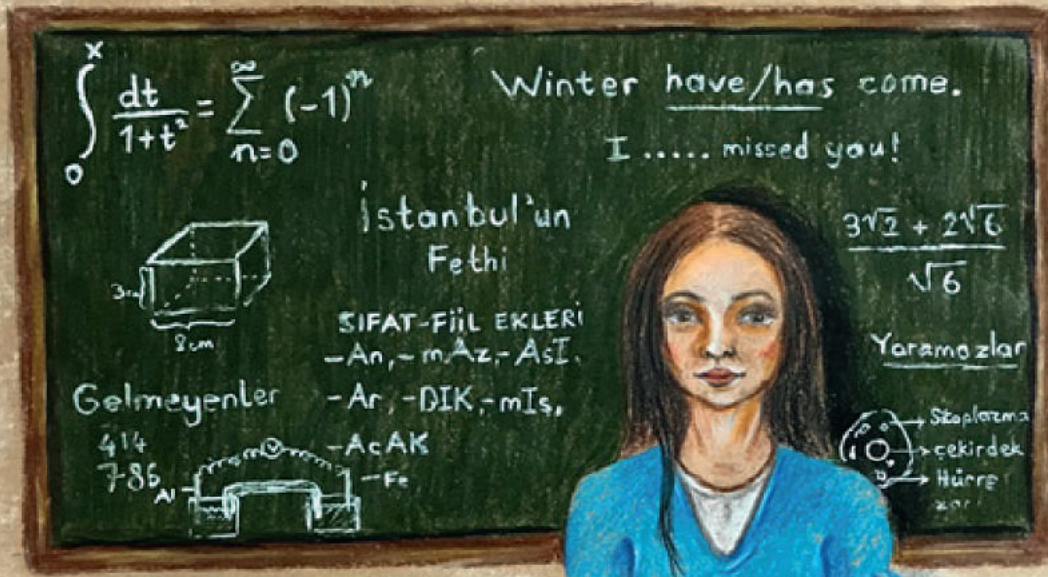 ∫₀ˣ dt/(1+t²) = ∑ₙ₌₀^∞ (-1)ⁿ
Winter have/has come.
I ..... missed you!
İstanbul'un
Fethi
3√2 + 2√6
√6
3cm
8cm
SIFAT-FİİL EKLERİ
-An, -mAz, -AsI.
-Ar, -DIK, -mIş,
-AcAK
Yaramazlar
Gelmeyenler
414
786
Al
Fe
Stoplazma
çekirdek
Hücre
zarı